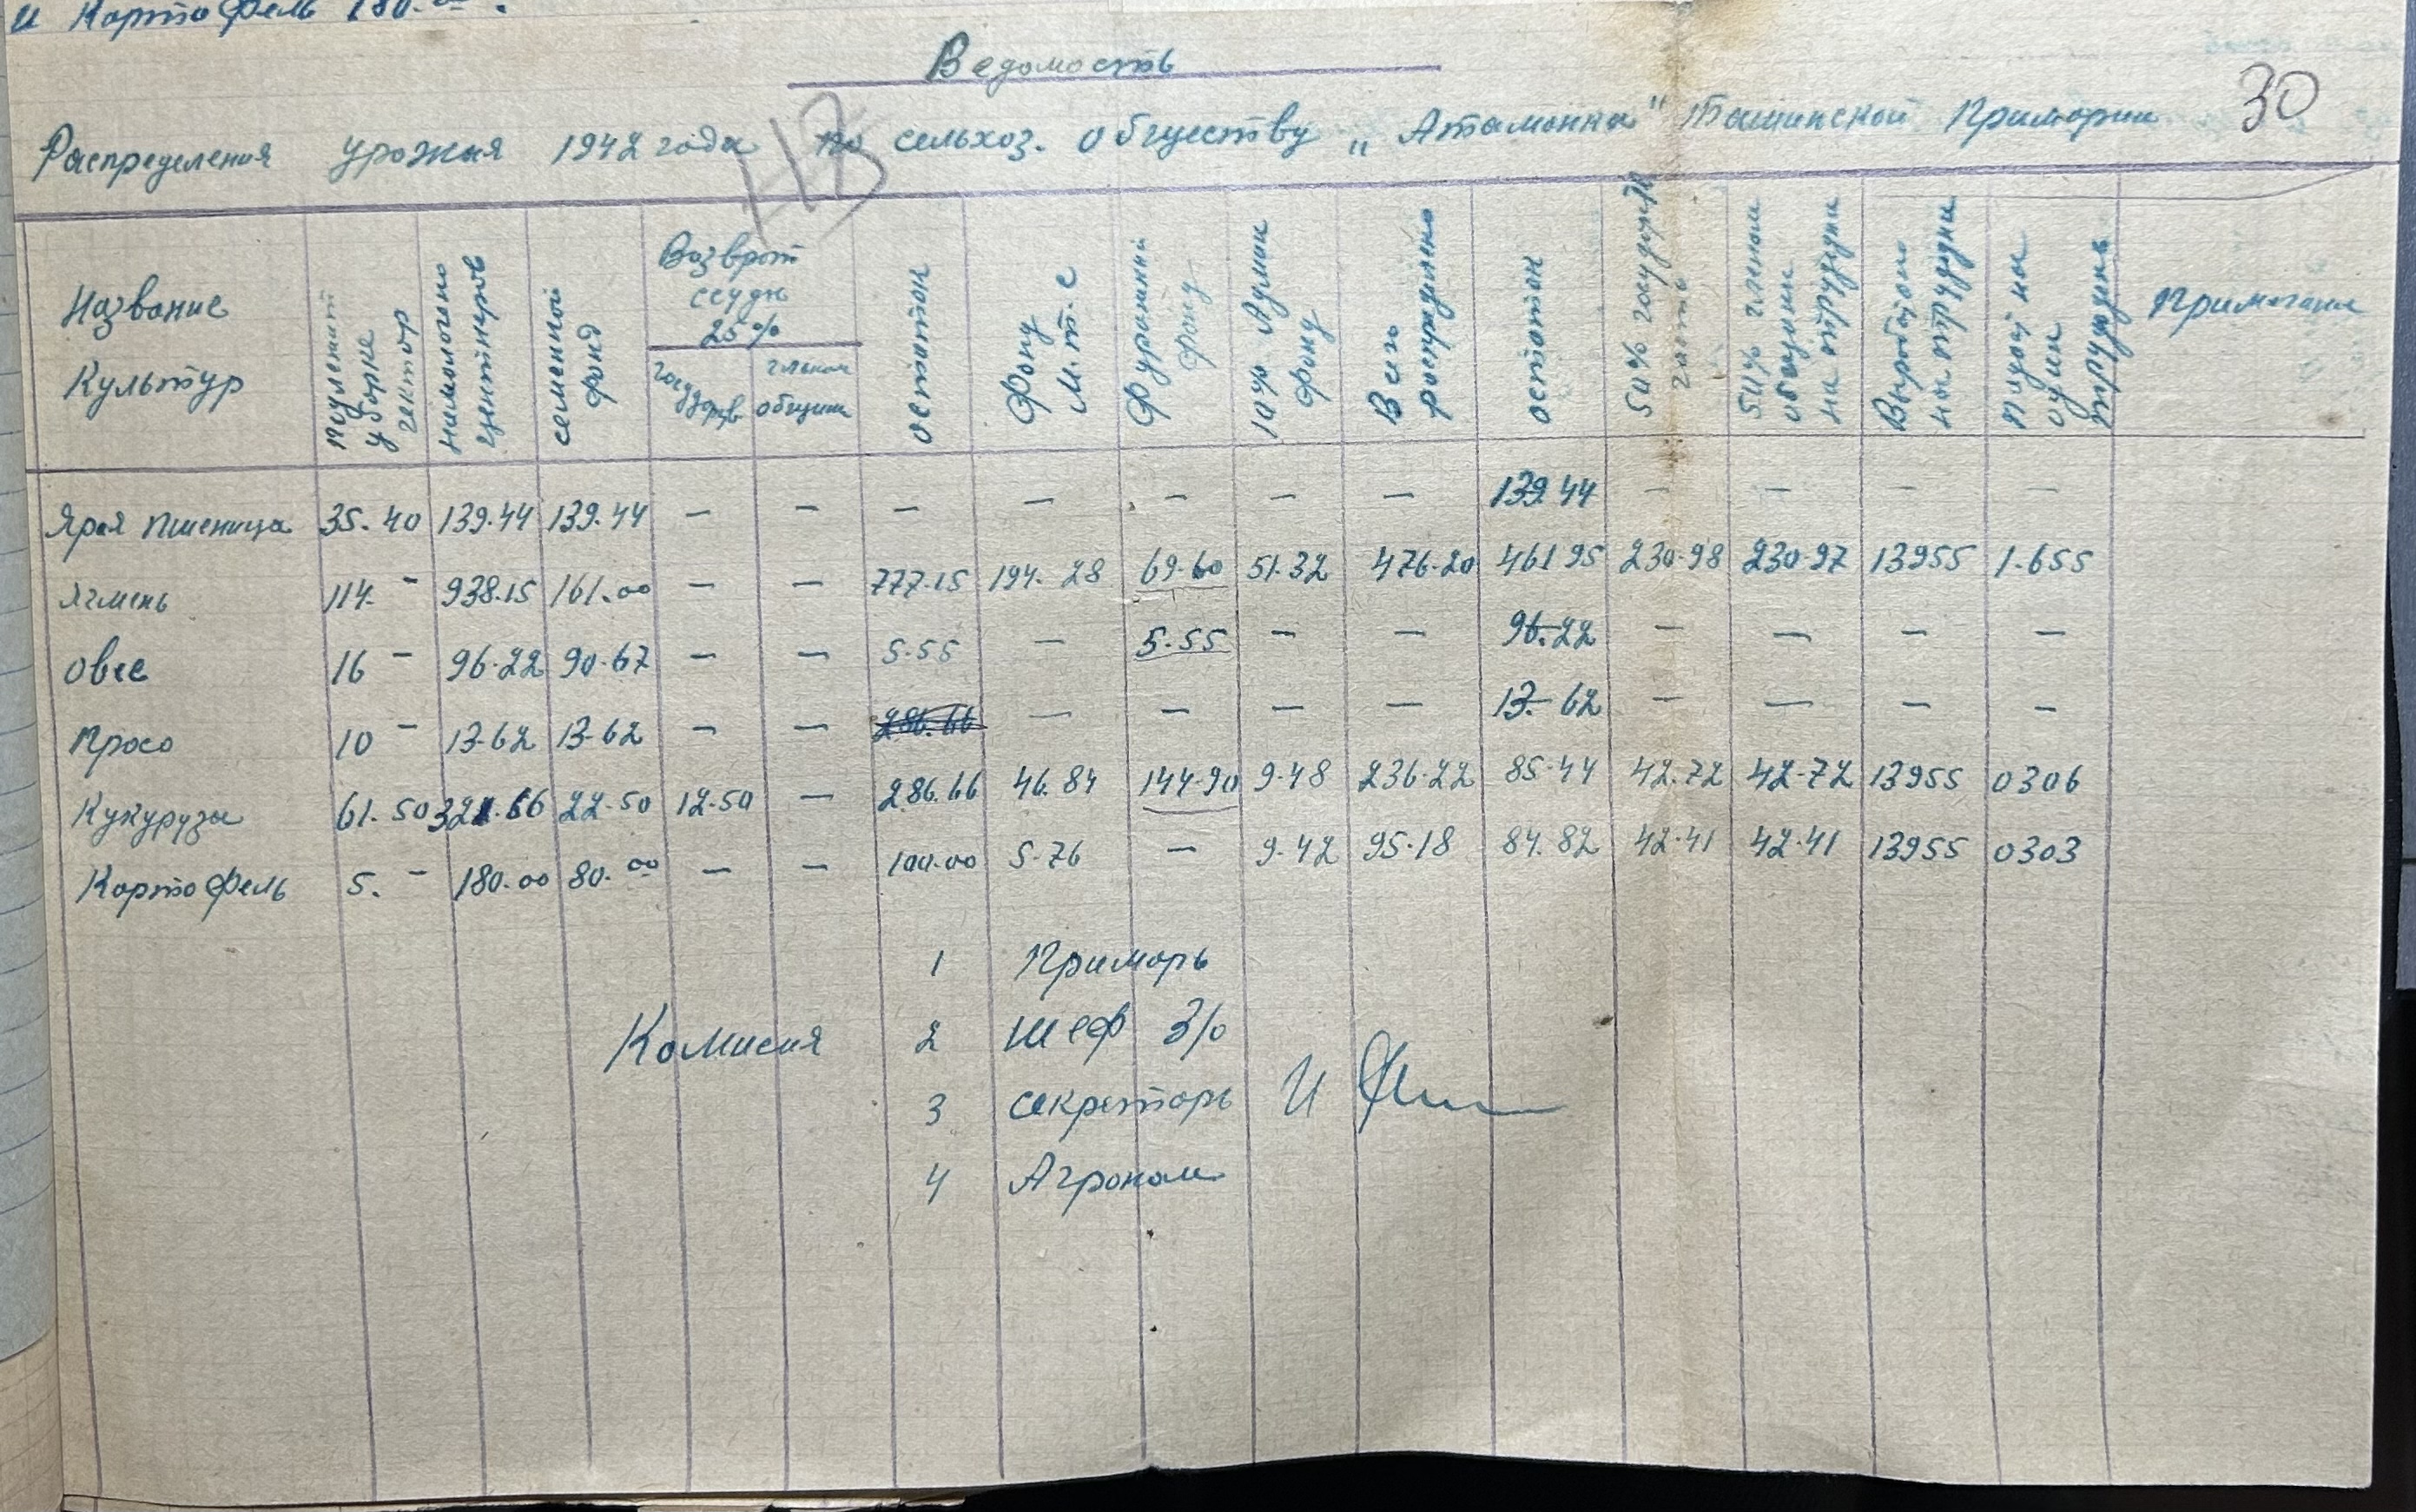 и Картофель 180.00.
Ведомость
30
Распределения урожая 1942 года по сельхоз. обществу „Атамонка" Ташинской Примарии
113
Название Культур | Подлежит уборке гектар | намолочено центнеров | семенной фонд | Возврот ссуды 25% | госудорв | членам общины | остоток | Фонд М.т.с | Фуражний фонд | 10% Админ Фонд | Всего роспределено | остоток | 50% государ | 50% членам общины на трудодни | Выработано на трудодни | на один трудодень | Примечание
Ярая пшеница 35.40 139.44 139.44 — — — — — — — 139.44 — — — —
Ячмень 114. - 938.15 161.00 — — 777.15 194.28 69.60 51.32 476.20 461 95 230.98 230.97 13955 1.655
Овес 16 - 96.22 90.67 — — 5.55 — 5.55 — — 96.22 — — — —
Просо 10 - 13.62 13.62 — — 286.66 — — — — 13.62 — — — —
Кукуруза 61.50 321.66 22.50 12.50 — 286.66 46.84 144.90 9.48 236.22 85.44 42.72 42.72 13955 0306
Картофель 5. - 180.00 80.00 — — 100.00 5.76 — 9.42 95.18 84.82 42.41 42.41 13955 0303
Комисия
1 Примарь
2 Шеф З/о
3 Секреторь
4 Агроном